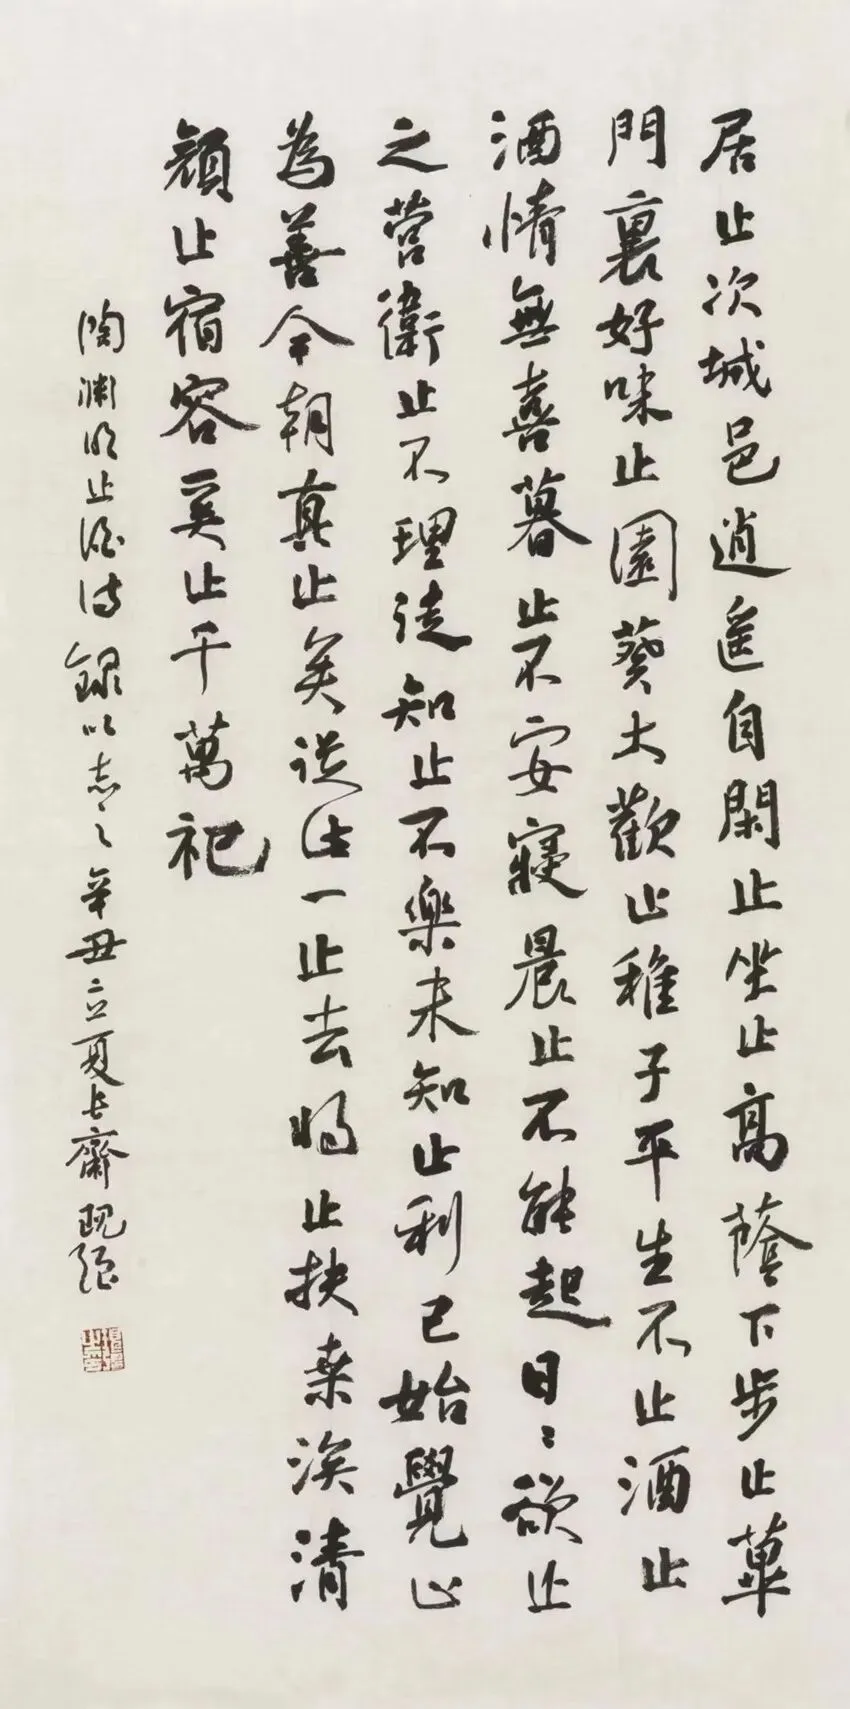 居止次城邑逍遥自閑止坐止高蔭下步止蓽
門裏好味止園葵大歡止稚子平生不止酒止
酒情無喜暮止不安寢晨止不能起日々欲止
之營衛止不理徒知止不樂未知止利己始覺止
為善今朝真止矣從此一止去將止扶桑涘清
顏止宿容奚止千萬祀
陶淵明止酒诗錄以志之辛丑立夏長齋